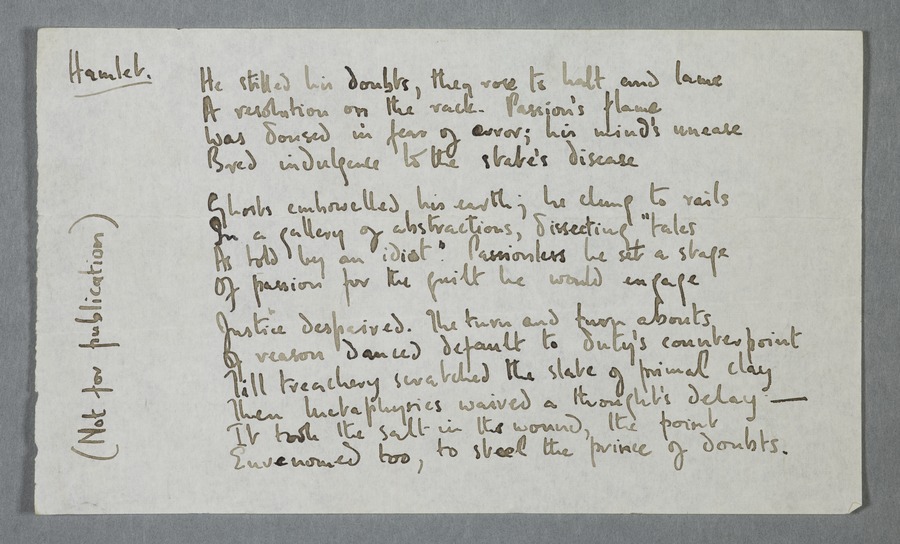 Hamlet.
He stilled his doubts, they rose to halt and lame
A resolution on the rack. Passion's flame
Was doused in fear of error; his mind's unease
Bred indulgence to the state's disease
Ghosts embowelled his earth; he clung to rails
In a gallery of abstractions, dissecting "tales
As told by an idiot". Passionless he set a stage
Of passion for the guilt he would engage
Justice despaired. The turn and turn abouts
Of reason danced default to duty's counterpoint
Till treachery scratched the slate of primal clay
Then Metaphysics waived a thought's delay —
It took the salt in the wound, the point
Envenomed too, to steel the prince of doubts.
(Not for publication)